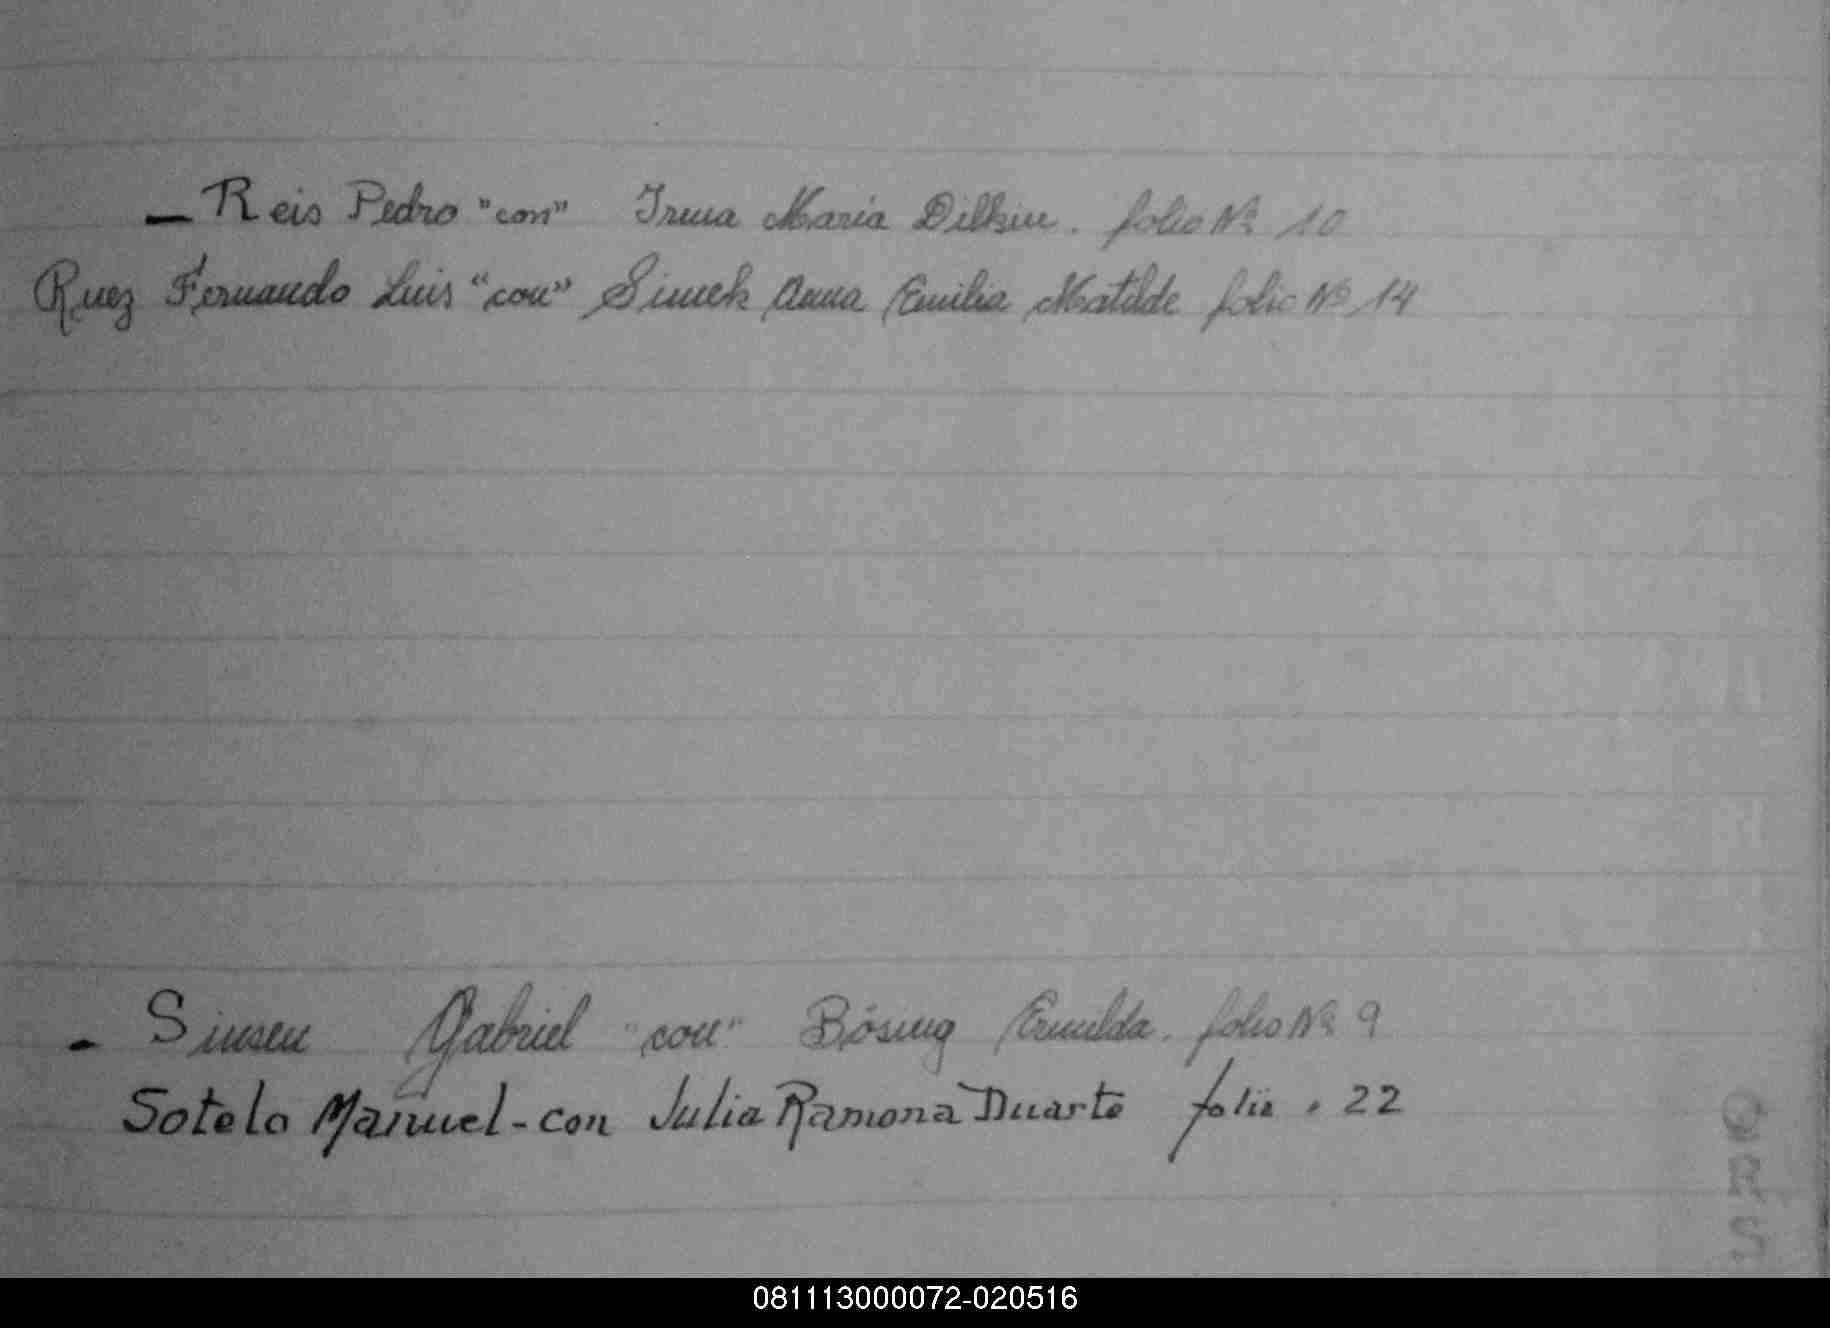 — Reis Pedro "con" Irma Maria Dilkin. folio Nº 10
Ruez Fernando Luis "con" Simek Anna Emilia Matilde folio Nº 14
- Sinsen Gabriel "con" Bösing Ermilda. folio Nº 9
Sotelo Manuel - con Julia Ramona Duarte folio . 22
Q
R
S
081113000072-020516